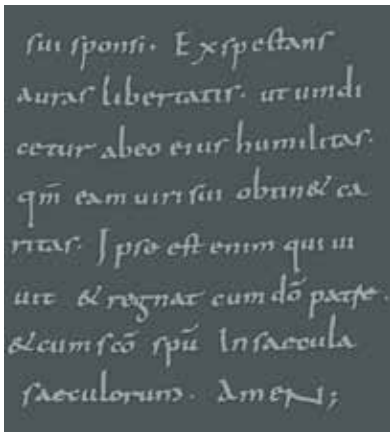 sui sponsi. Exspectans
auras libertatis. ut uindi
cetur abeo eius humilitas.
qm̄ eam uiri sui obtin& ca
ritas. Ipse est enim qui ui
uit & regnat cum dō patre.
& cum scō spū In saecula
saeculorum. Amen;